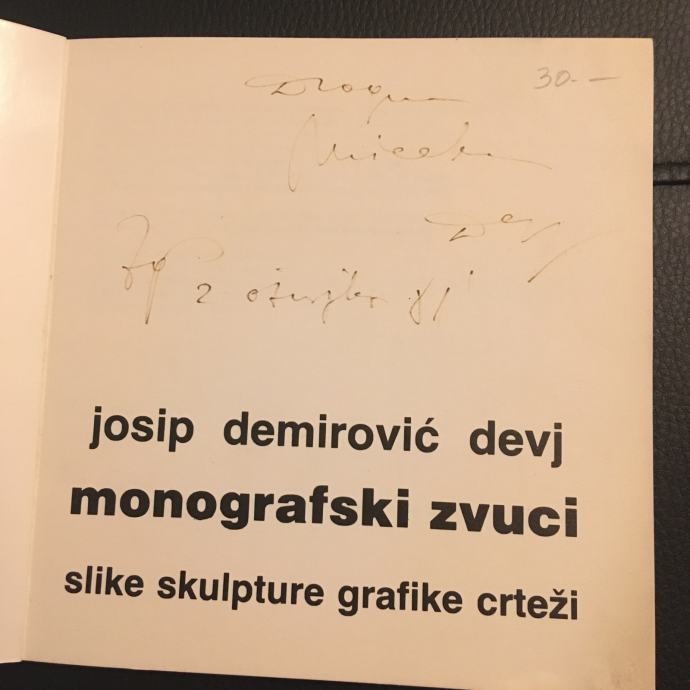 30.–
Dragom
Dev
Zg 2 ožujka 81'
josip demirović devj
monografski zvuci
slike skulpture grafike crteži